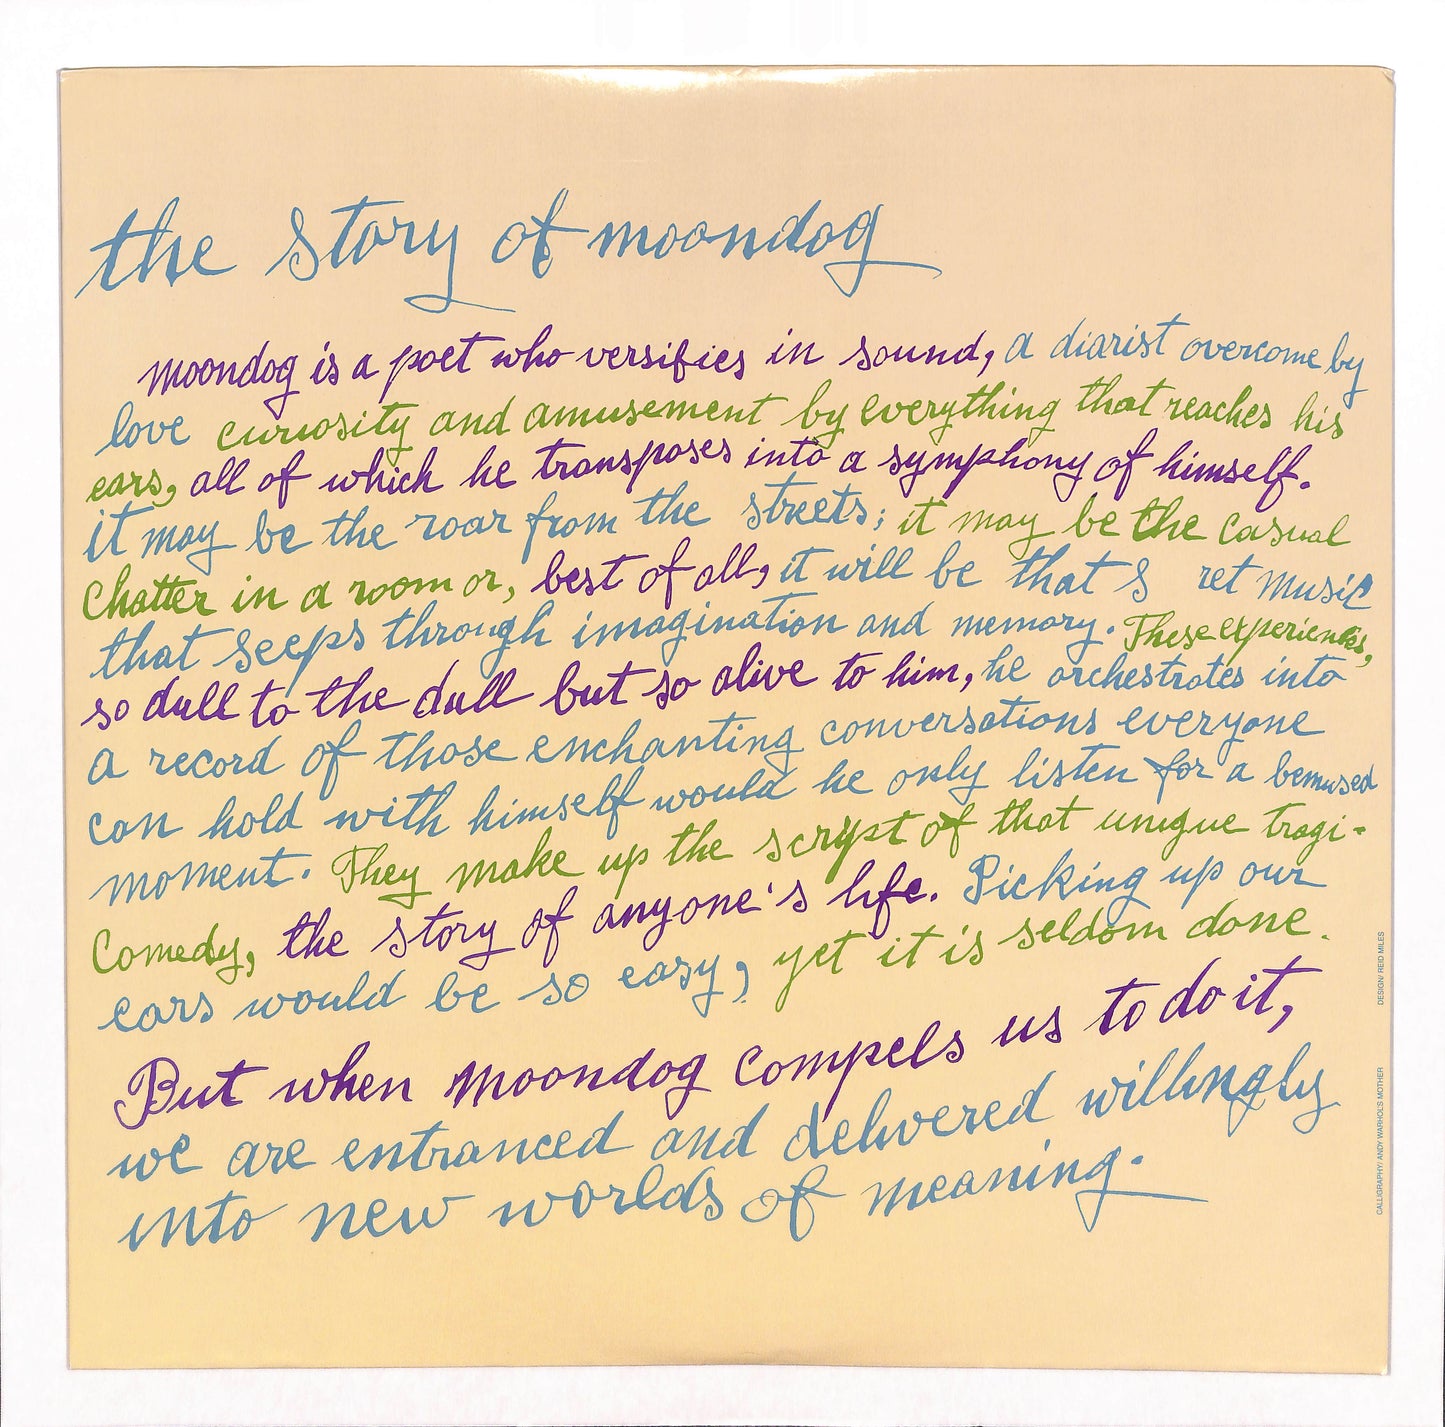 the story of moondog
moondog is a poet who versifies in sound, a diarist overcome by
love curiosity and amusement by everything that reaches his
ears, all of which he transposes into a symphony of himself.
it may be the roar from the streets; it may be the casual
Chatter in a room or, best of all, it will be that s ret music
that seeps through imagination and memory. These experiences,
so dull to the dull but so alive to him, he orchestrates into
a record of those enchanting conversations everyone
can hold with himself would he only listen for a bemused
moment. They make up the script of that unique tragi-
Comedy, the story of anyone's life. Picking up our
ears would be so easy, yet it is seldom done.
But when moondog compels us to do it,
we are entranced and delivered willingly
into new worlds of meaning.
DESIGN/ REID MILES
CALLIGRAPHY/ ANDY WARHOL'S MOTHER